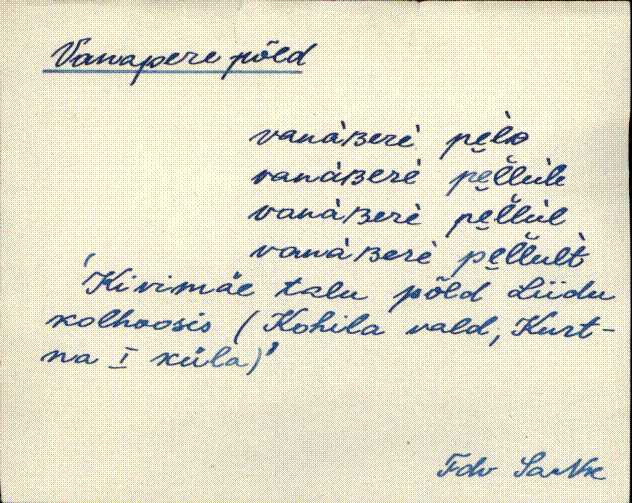 Vanapere põld
vanàʙerè pe̮lᴅ
vanàʙerè pe̮l̆lùle
vanàʙerè pe̮l̆lùl
vanàʙerè pe̮l̆lùlt
'Kivimäe talu põld Liidu
kolhoosis (Kohila vald, Kurt-
na I küla)'